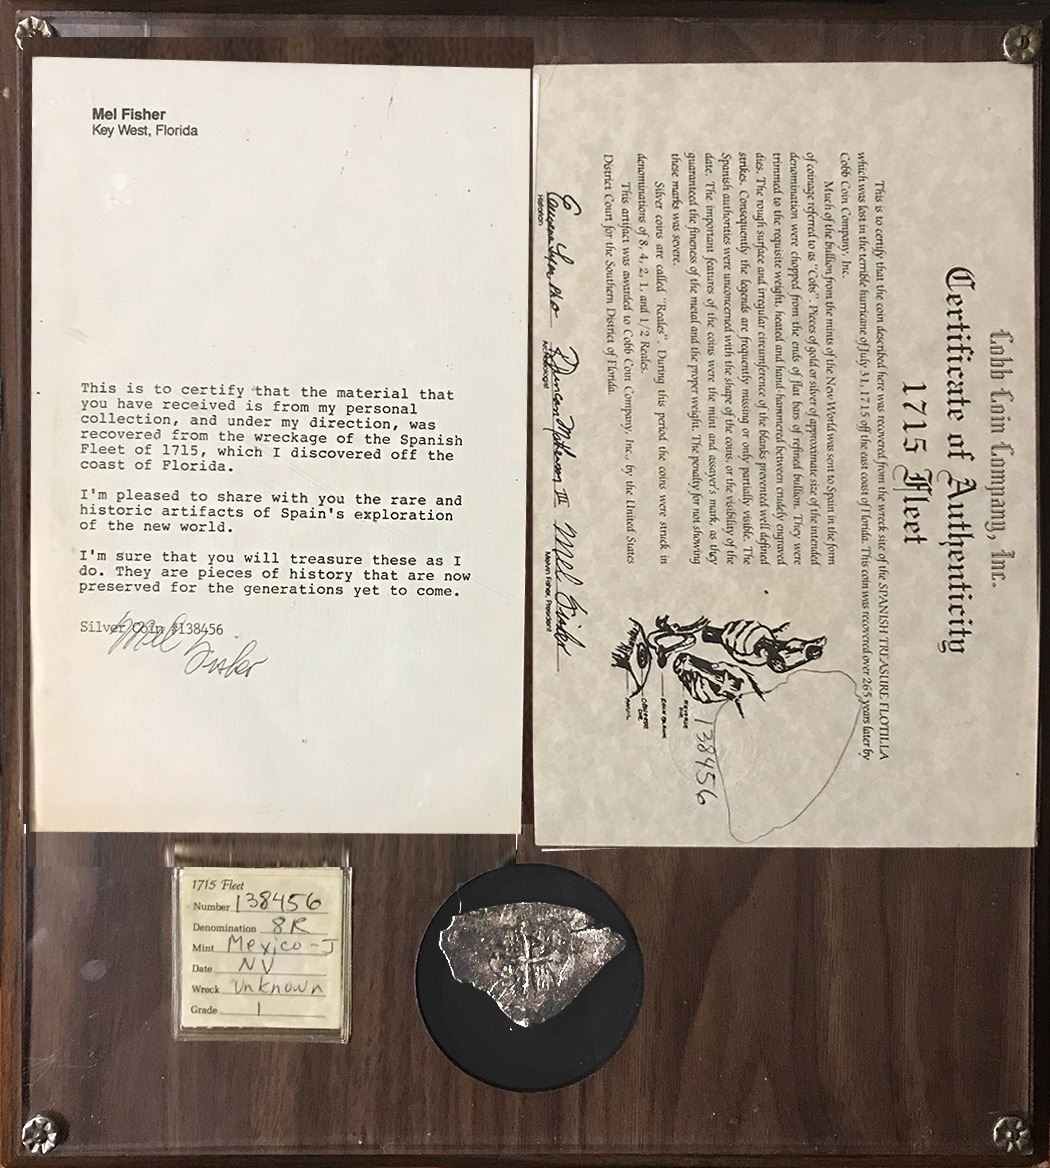 Mel Fisher
Key West, Florida
This is to certify that the material that
you have received is from my personal
collection, and under my direction, was
recovered from the wreckage of the Spanish
Fleet of 1715, which I discovered off the
coast of Florida.
I'm pleased to share with you the rare and
historic artifacts of Spain's exploration
of the new world.
I'm sure that you will treasure these as I
do. They are pieces of history that are now
preserved for the generations yet to come.
Silver Coin #138456
Mel Fisher
Cobb Coin Company, Inc.
Certificate of Authenticity
1715 Fleet
This is to certify that the coin described here was recovered from the wreck site of the SPANISH TREASURE FLOTILLA
which was lost in the terrible hurricane of July 31, 1715 off the east coast of Florida. This coin was recovered over 265 years later by
Cobb Coin Company, Inc.
Much of the bullion from the mints of the New World was sent to Spain in the form
of coinage referred to as "Cobs". Pieces of gold or silver of approximate size of the intended
denomination were chopped from the ends of flat bars of refined bullion. They were
trimmed to the requisite weight, heated and hand-hammered between crudely engraved
dies. The rough surface and irregular circumference of the blanks prevented well defined
strikes. Consequently the legends are frequently missing or only partially visible. The
Spanish authorities were unconcerned with the shape of the coins, or the visibility of the
date. The important features of the coins were the mint and assayer's mark, as they
guaranteed the fineness of the metal and the proper weight. The penalty for not showing
these marks was severe.
Silver coins are called "Reales". During this period the coins were struck in
denominations of 8, 4, 2, 1, and 1/2 Reales.
This artifact was awarded to Cobb Coin Company, Inc., by the United States
District Court for the Southern District of Florida.
Eugene Lyon PhD
Historian
Duncan Mathewson III
Archaeologist
Mel Fisher
Melvin Fisher, President
REVERSE DIE
COIN BLANK
OBVERSE DIE
ANVIL
138456
1715 Fleet
Number 138456
Denomination 8R
Mint Mexico-J
Date NV
Wreck Unknown
Grade 1